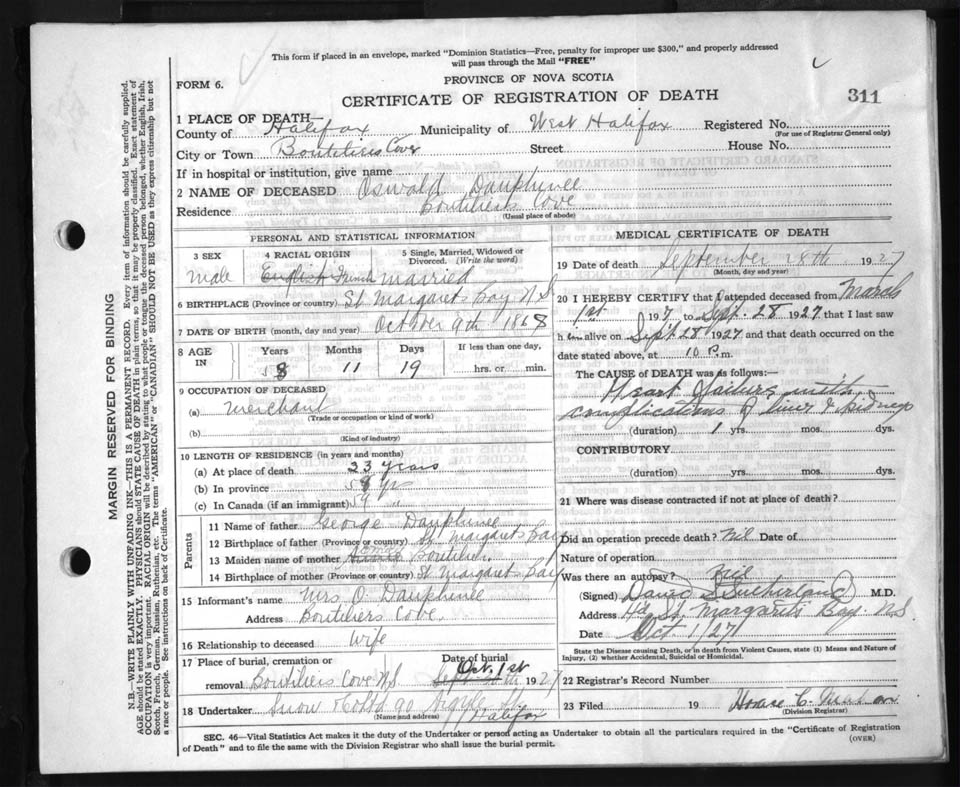 This form if placed in an envelope, marked "Dominion Statistics—Free, penalty for improper use $300," and properly addressed
will pass through the Mail "FREE"
FORM 6.
PROVINCE OF NOVA SCOTIA
CERTIFICATE OF REGISTRATION OF DEATH
311
1 PLACE OF DEATH—
County of Halifax Municipality of West Halifax Registered No.
(For use of Registrar General only)
City or Town Boutiliers Cove Street House No.
If in hospital or institution, give name
2 NAME OF DECEASED Oswald Dauphinee
Residence Boutiliers Cove
(Usual place of abode)
PERSONAL AND STATISTICAL INFORMATION
3 SEX 4 RACIAL ORIGIN 5 Single, Married, Widowed or
Divorced. (Write the word)
male English French married
6 BIRTHPLACE (Province or country) St Margarets Bay N S
7 DATE OF BIRTH (month, day and year) October 9th 1868
8 AGE IN Years Months Days If less than one day,
58 11 19 hrs. or min.
9 OCCUPATION OF DECEASED
(a) Merchant
(Trade or occupation or kind of work)
(b)
(Kind of industry)
10 LENGTH OF RESIDENCE (in years and months)
(a) At place of death 23 years
(b) In province yrs
(c) In Canada (if an immigrant) "
Parents
11 Name of father George Dauphinee
12 Birthplace of father (Province or country) St Margarets Bay
13 Maiden name of mother Boutilier
14 Birthplace of mother (Province or country) St Margarets Bay
15 Informant's name Mrs O. Dauphinee
Address Boutiliers Cove
16 Relationship to deceased Wife
17 Place of burial, cremation or Date of burial
Oct. 1st
removal Boutiliers Cove N.S. Sept 30th 1927
18 Undertaker Snow & Co Ltd 90 Argyle St
(Name and address) Halifax
MEDICAL CERTIFICATE OF DEATH
19 Date of death September 28th 1927
(Month, day and year)
20 I HEREBY CERTIFY that I attended deceased from March
1st 197 to Sept. 28 1927 that I last saw
h im alive on Sept 28 1927 and that death occurred on the
date stated above, at 10 P.m.
The CAUSE of DEATH was as follows:
Heart failure with
complications of liver & kidneys
(duration) 1 yrs. mos. dys.
CONTRIBUTORY
(duration) yrs. mos. dys.
21 Where was disease contracted if not at place of death?
Did an operation precede death? Nil Date of
Nature of operation
Was there an autopsy? Nil
(Signed) David S Sutherland M.D.
Address Hd St. Margarets Bay N.S
Date Oct 1/27
State the Disease causing Death, or in death from Violent Causes, state (1) Means and Nature of
Injury, (2) whether Accidental, Suicidal or Homicidal.
22 Registrar's Record Number
23 Filed 19 C.
(Division Registrar)
SEC. 46—Vital Statistics Act makes it the duty of the Undertaker or person acting as Undertaker to obtain all the particulars required in the "Certificate of Registration
of Death" and to file the same with the Division Registrar who shall issue the burial permit.
(OVER)
MARGIN RESERVED FOR BINDING
N.B.—WRITE PLAINLY WITH UNFADING INK—THIS IS A PERMANENT RECORD. Every item of information should be carefully supplied.
AGE should be stated EXACTLY. PHYSICIANS should STATE CAUSE OF DEATH in plain terms, so that it may be properly classified. Exact statement of
OCCUPATION is very important. RACIAL ORIGIN will be described by stating to what people or tongue the deceased person belonged, whether English, Irish,
Scotch, French, German, Russian, Ruthenian, etc. The terms "AMERICAN" or "CANADIAN" SHOULD NOT BE USED as they express citizenship but not
a race or people. See instructions on back of Certificate.